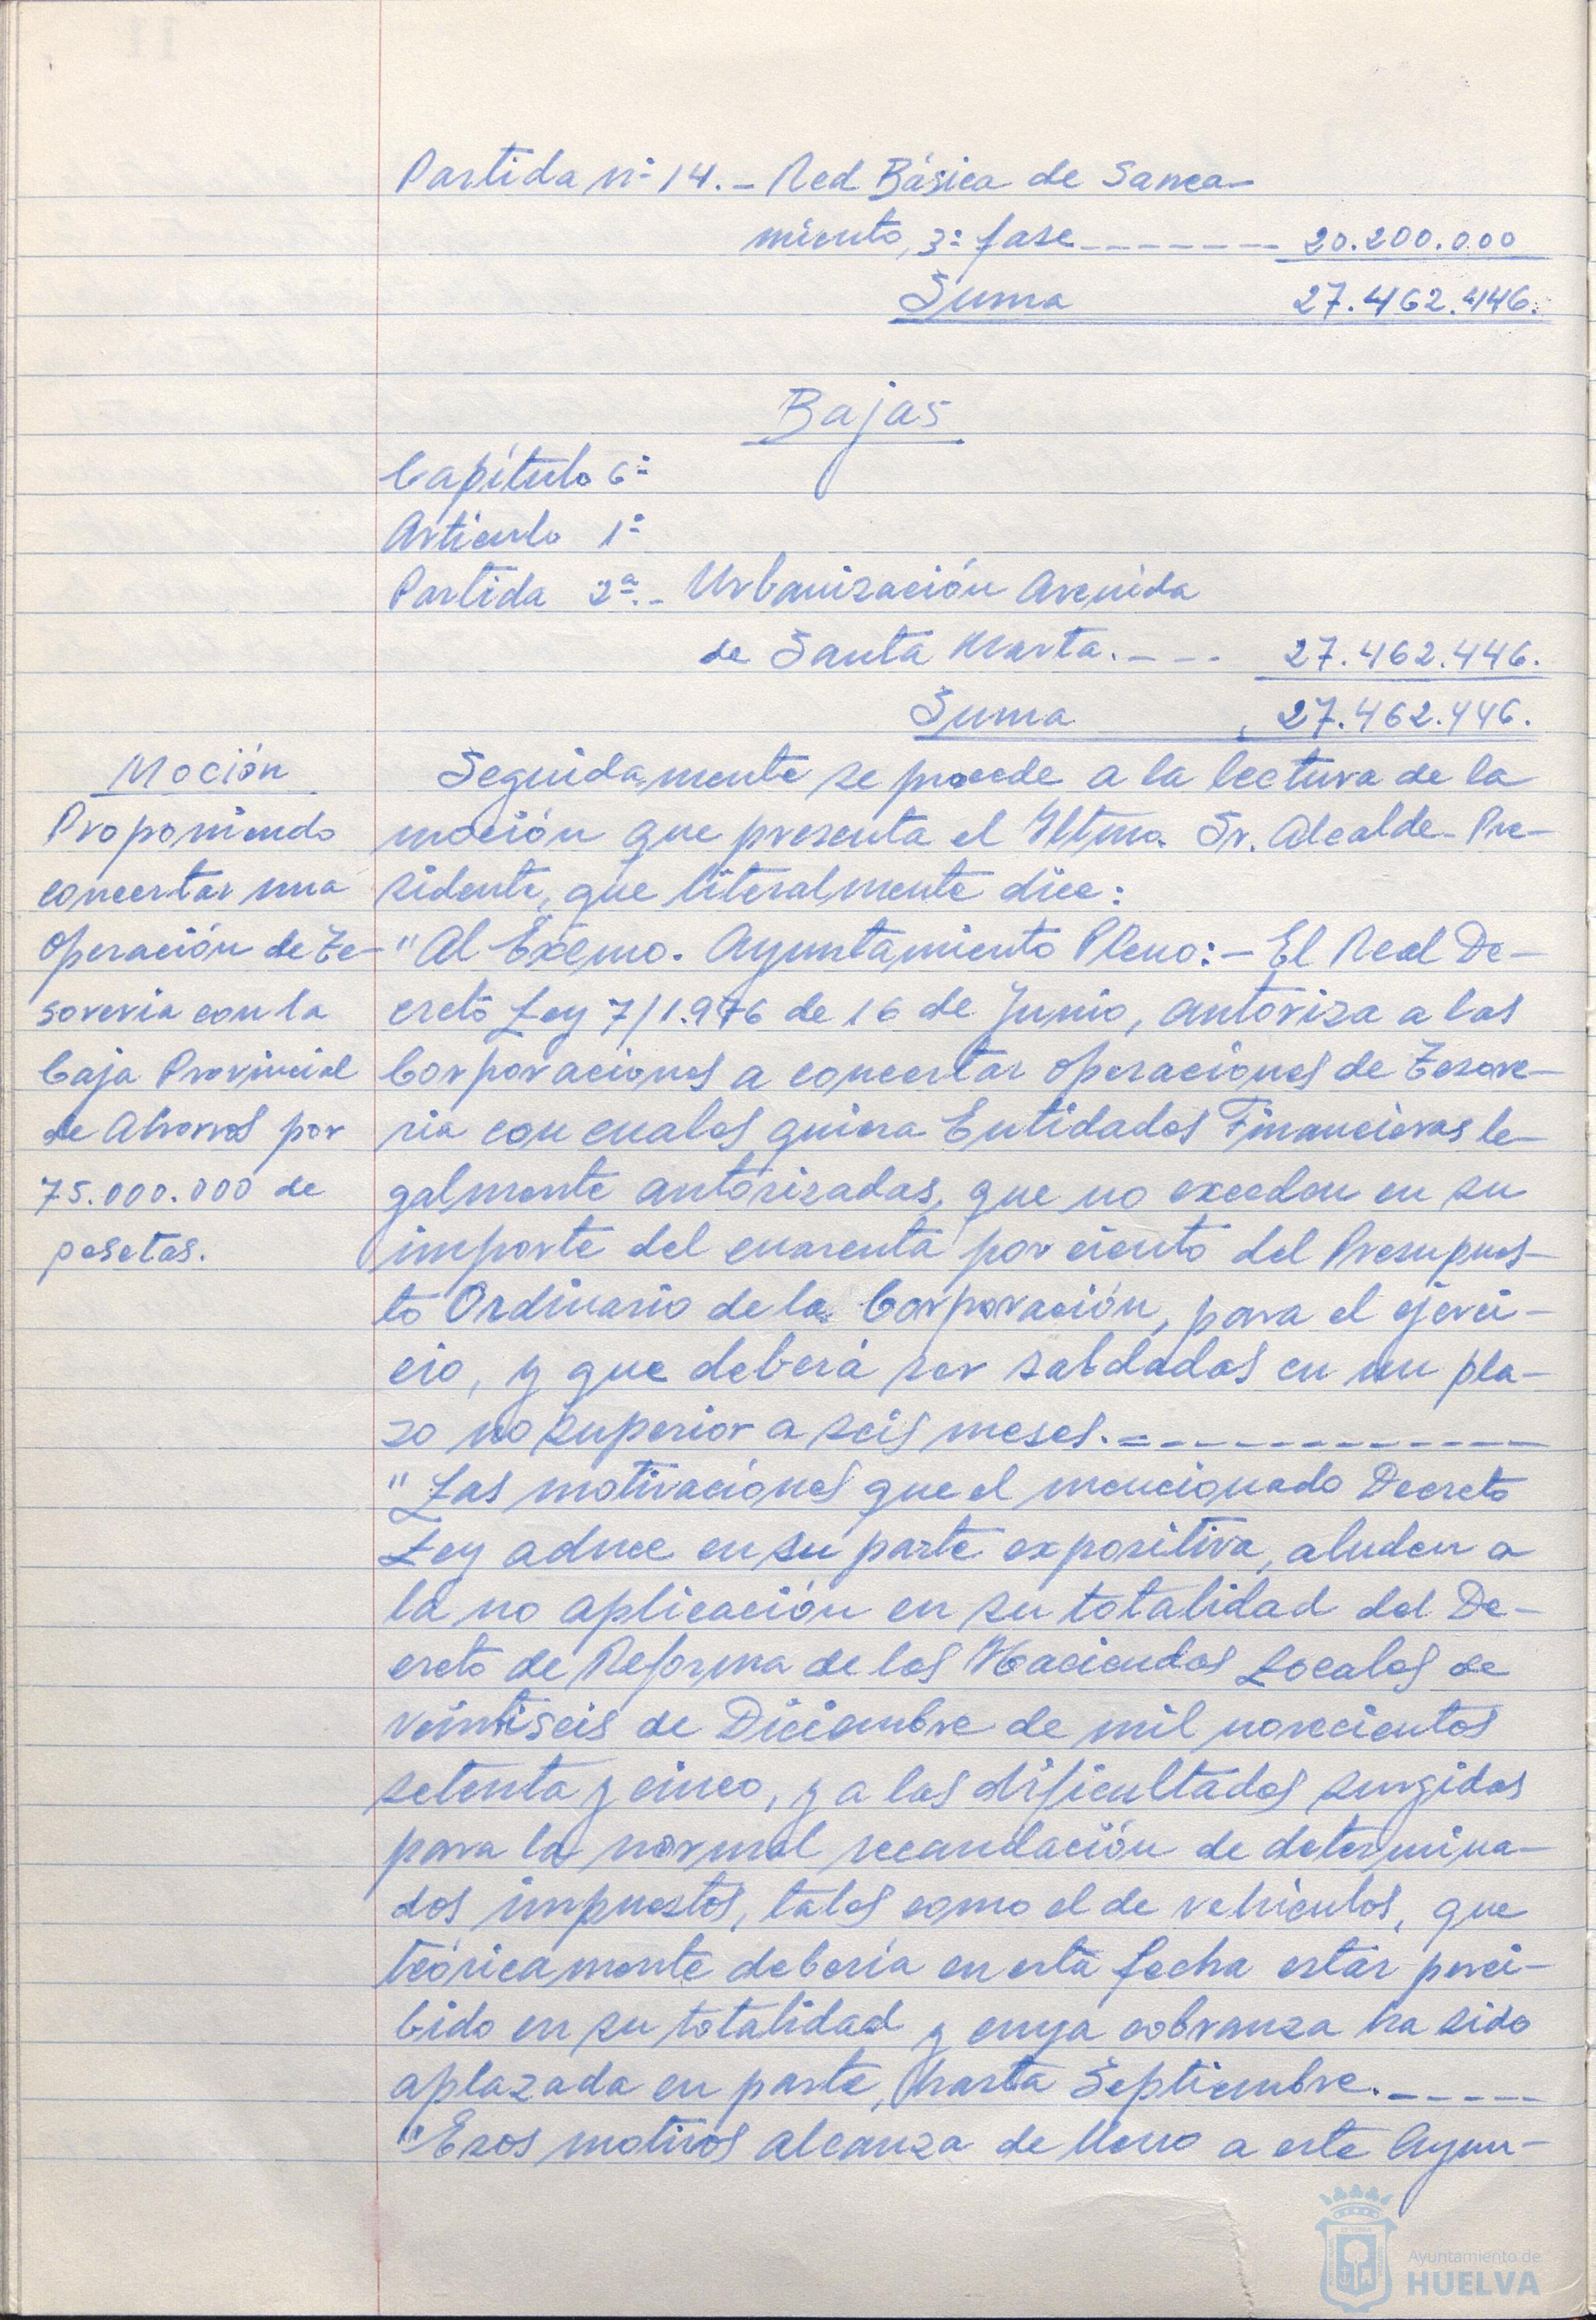 Partida nº 14. - Red Básica de Sanea-
miento, 3ª fase -------- 20.200.000
Suma 27.462.446.
Bajas
Capítulo 6º
Articulo 1º
Partida 2ª.- Urbanización Avenida
de Santa Marta. --- 27.462.446.
Suma 27.462.446.
Moción
Proponiendo
concertar una
operación de Te-
soreria con la
Caja Provincial
de Ahorros por
75.000.000 de
pesetas.
Seguidamente se procede a la lectura de la
moción que presenta el Iltmo. Sr. Alcalde-Pre-
sidente, que literalmente dice:
"Al Excmo. Ayuntamiento Pleno: - El Real De-
creto Ley 7/1.976 de 16 de Junio, autoriza a las
Corporaciones a concertar operaciones de Tesore-
ria con cuales quiera Entidades Financieras le-
galmente autorizadas, que no exceden en su
importe del cuarenta por ciento del Presupues-
to Ordinario de la Corporación, para el ejerci-
cio, y que deberá ser saldadas en un pla-
zo no superior a seis meses. ------------
"Las motivaciones que el mencionado Decreto
Ley aduce en su parte expositiva, aluden a
la no aplicación en su totalidad del De-
creto de Reforma de las Haciendas Locales de
veintiseis de Diciembre de mil novecientos
setenta y cinco, y a las dificultades surgidas
para la normal recaudación de determina-
dos impuestos, tales como el de vehiculos, que
teóricamente deberia en esta fecha estar perci-
bido en su totalidad y cuya cobranza ha sido
aplazada en parte, hasta Septiembre. -----
"Esos motivos alcanza de lleno a este Ayun-
Ayuntamiento de
HUELVA